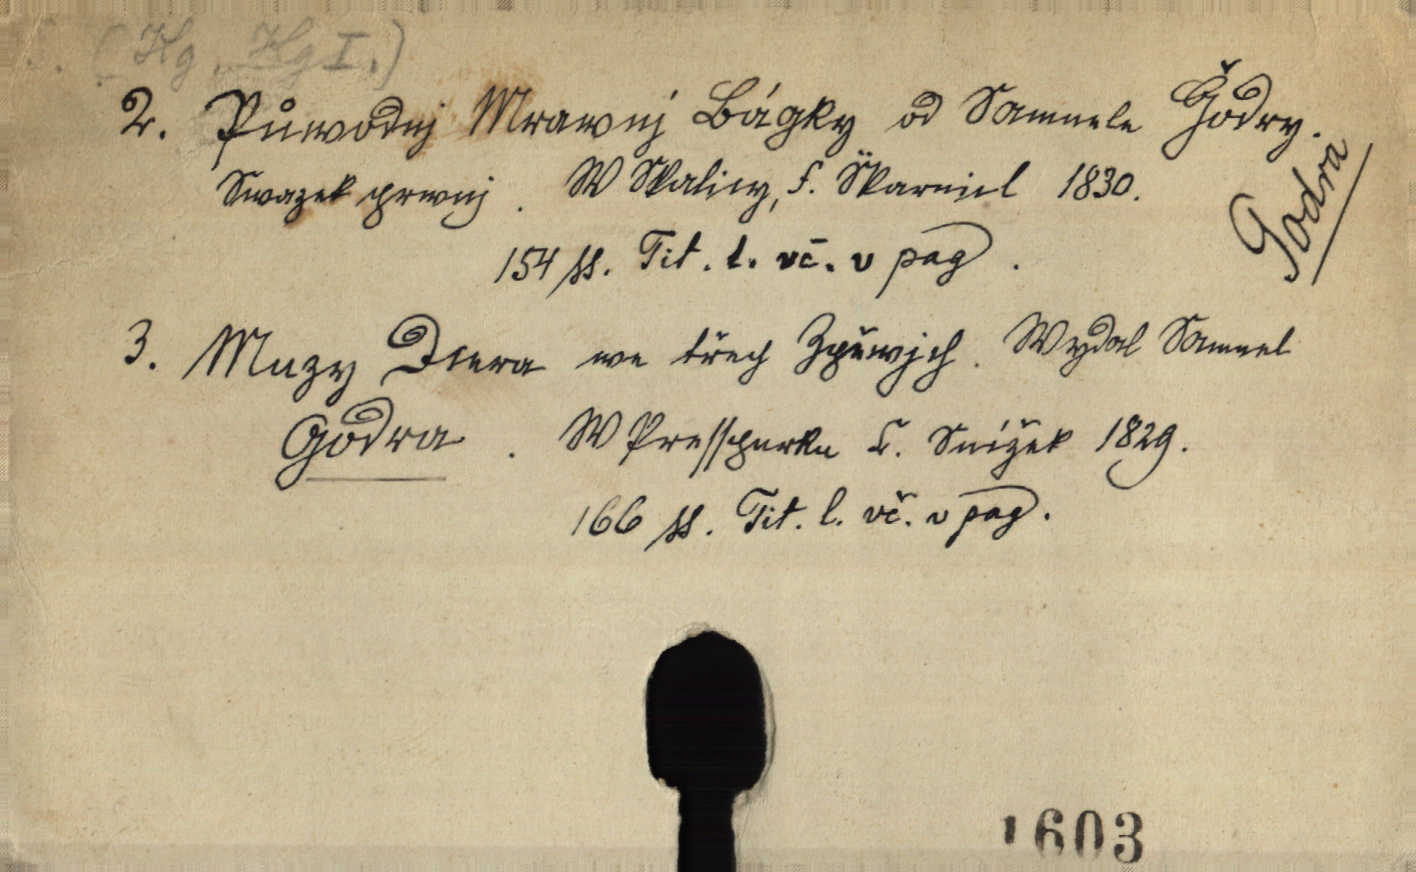 (Kg. Kg I.)
2. Půwodnj Mrawnj Bágky od Samuele Ǧodry.
Godra
Swazek prwnj. W Skalicy, f. Škarnicl 1830.
154 ss. Tit. l. vč. v pag.
3. Muzy Dcera we třech Zpěwjch. Wydal Samuel
Godra. W Presspurku S. Snížek 1829.
166 ss. Tit. l. vč. v pag.
1603